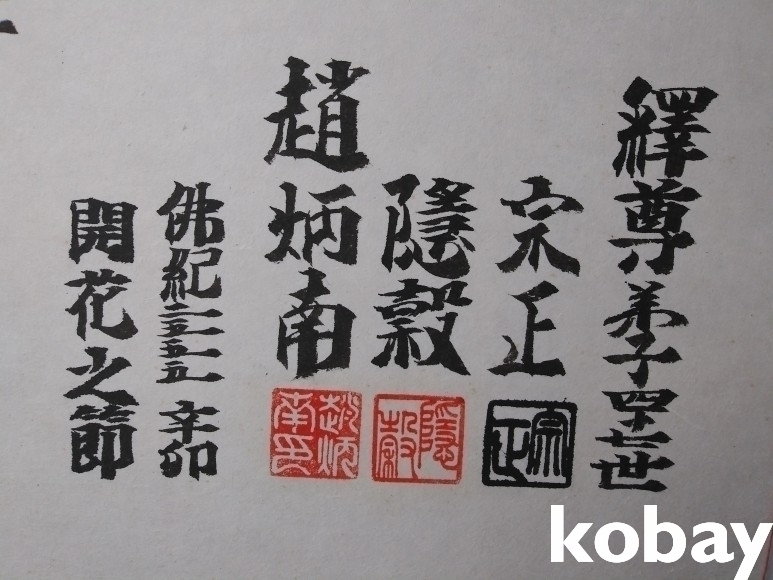 釋尊弟子四十七世
宗正
宗正
隱穀
隱穀
趙炳南
趙炳南印
佛紀二五五五 辛卯
開花之節
kobay